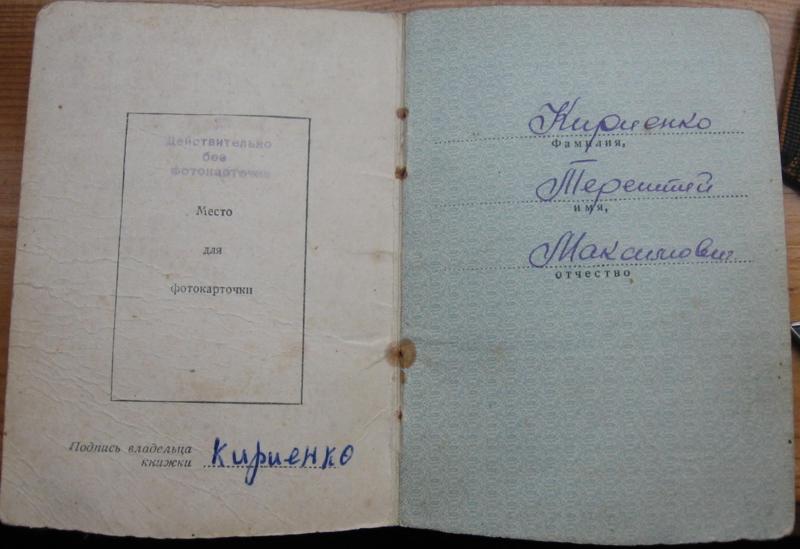 Действительно
без
фотокарточки
Место
для
фотокарточки
Подпись владельца
книжки Кириенко
Кириенко
Фамилия,
Терентий
имя,
Максимович
отчество